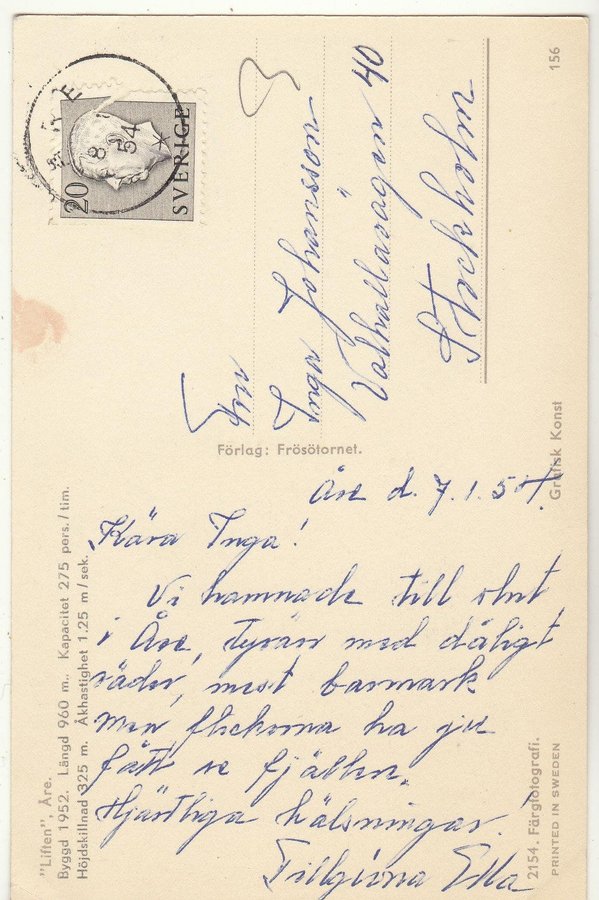 20
SVERIGE
8
54
156
Fru
Inga Johansson
Valhallavägen 40
Stockholm
Förlag: Frösötornet.
Grafisk Konst
Åre d. 7.1.54.
Kära Inga!
Vi hamnade till slut
i Åre, tyvärr med dåligt
väder, mest barmark
men flickorna ha ju
fått se fjällen.
Hjärtliga hälsningar.
Tillgivna Ella
"Liften", Åre.
Byggd 1952. Längd 960 m.. Kapacitet 275 pers./tim.
Höjdskillnad 325 m. Åkhastighet 1.25 m/sek.
2154. Färgfotografi.
PRINTED IN SWEDEN